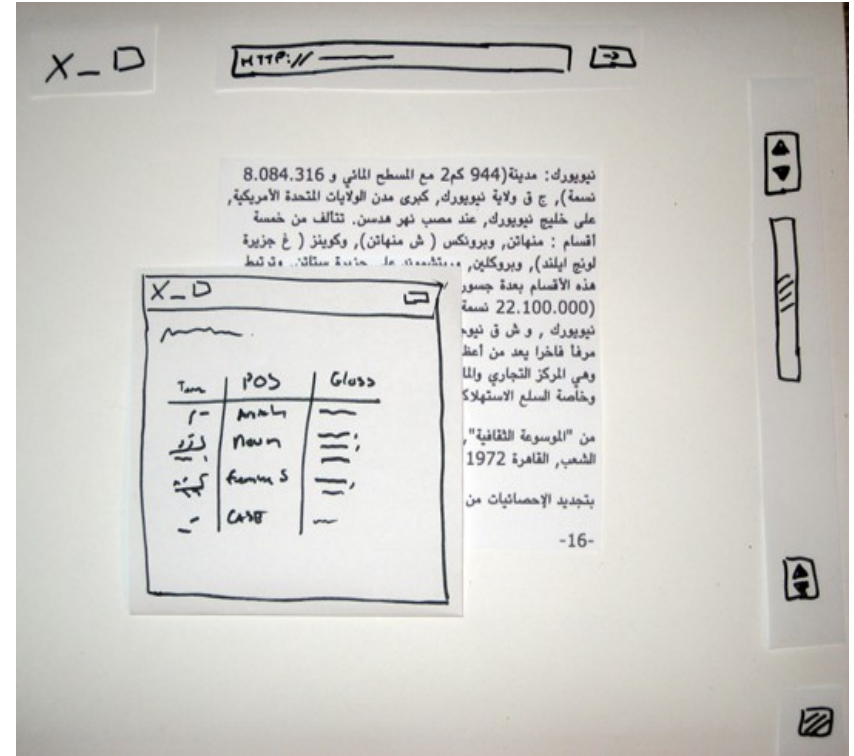 X_D
HTTP://
نيويورك: مدينة(944 كم2 مع المسطح المائي و 8.084.316
نسمة), ج ق ولاية نيويورك, كبرى مدن الولايات المتحدة الأمريكية,
على خليج نيويورك, عند مصب نهر هدسن. تتألف من خمسة
أقسام : منهاتن, وبرونكس ( ش منهاتن), وكوينز ( غ جزيرة
لونج ايلند), وبروكلين, وريتشموند على جزيرة ستاتن. وترتبط
هذه الأقسام بعدة جسور
(22.100.000 نسمة
نيويورك , و ش ق
مرفأ فاخرا يعد من
وهي المركز التجاري
وخاصة السلع
من "الموسوعة الثقافية",
الشعب, القاهرة 1972
بتجديد الإحصائيات من
-16-
X_D
POS Gloss
noun
CASE